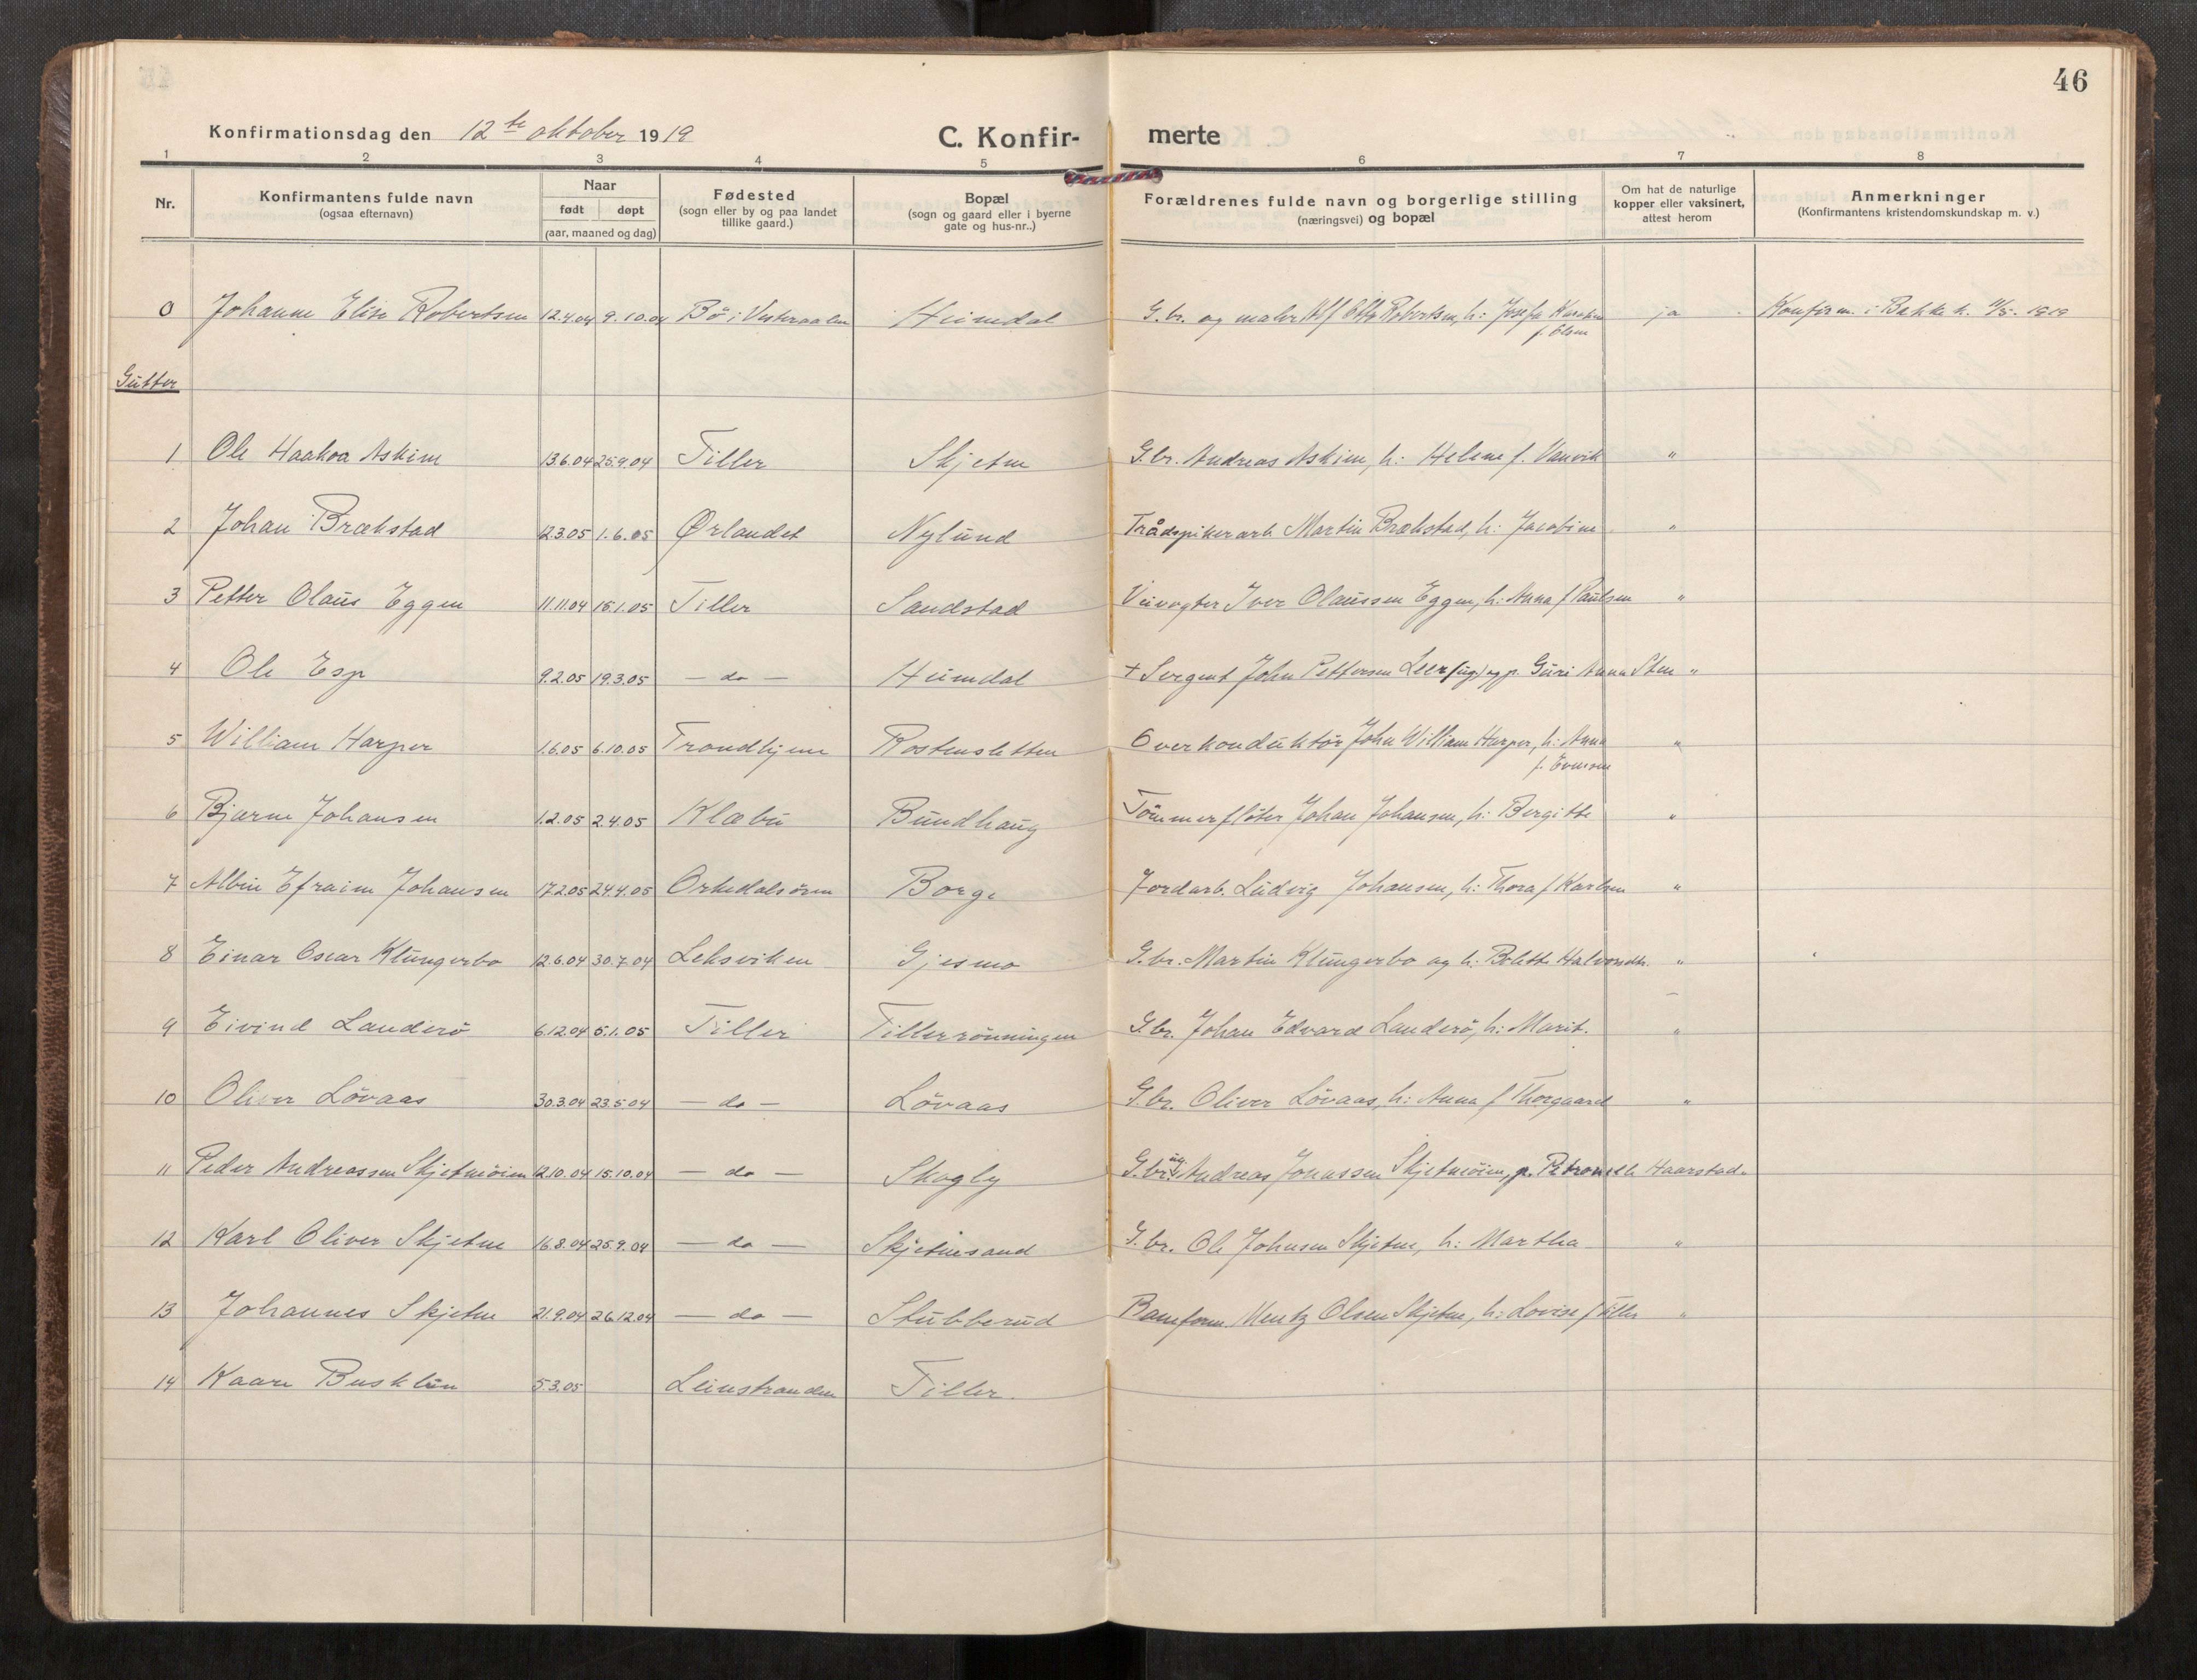 46
Konfirmationsdag den 12te oktober 1919
C. Konfir- merte
1 2 3 4 5 6 7 8
Nr.
Konfirmantens fulde navn
(ogsaa efternavn)
Naar
født døpt
(aar, maaned og dag)
Fødested
(sogn eller by og paa landet
tillike gaard.)
Bopæl
(sogn og gaard eller i byerne
gate og hus-nr..)
Forældrenes fulde navn og borgerlige stilling
(næringsvei) og bopæl
Om hat de naturlige
kopper eller vaksinert,
attest herom
Anmerkninger
(Konfirmantens kristendomskundskap m. v.)
0 Johanne Elise Robertsen 12.4.04 9.10.04 Bö i Vesteraalen Heimdal G.br. og maler Alf Robertsen, h: Josefa ja Konfirm. i Bakke k. 1919
f. Olsen
Gutter
1 Ole Haakon Askim 13.6.04 25.9.04 Tiller Skjetne G.br. Andreas Askim, h: Helene f. Vanvik "
2 Johan Brækstad 12.3.05 1.6.05 Ørlandet Nylund Trådspikerarb. Martin Brækstad, h: Jacobine "
3 Petter Olaus Eggen 11.11.04 15.1.05 Tiller Sandstad Veivogter Iver Olaussen Eggen, h: Anna f Paulsen "
4 Ole Esp 9.2.05 19.3.05 — do — Heimdal + Sergent John Pettersen Leer (ug) og p. Guri Anna Sten "
5 William Harper 1.6.05 6.10.05 Trondhjem Rostensletten Overkonduktör John William Harper, h: Anna "
f. Evensen
6 Bjarne Johansen 1.2.05 2.4.05 Klæbu Bundhaug Tömmerflöter Johan Johansen, h: Bergitte "
7 Albin Efraim Johansen 17.2.05 24.4.05 Orkedalsören Borge Jordarb. Ludvig Johansen, h: Thora f Karlsen "
8 Einar Oscar Klungerbo 12.6.04 30.7.04 Leksviken Gjesmo G.br. Martin Klungerbo og h: Bolette Halvorsdtr. "
9 Eivind Landerö 6.12.04 5.1.05 Tiller Tillerrönningen G.br. Johan Edvard Landerö, h: Marit. "
10 Oliver Lövaas 30.3.04 23.5.04 — do — Lövaas G.br. Oliver Lövaas, h: Anna f Thorgaard "
11 Peder Andreassen Skjetnöien 12.10.04 15.10.04 — do — Skogly G.br. ug. Andreas Jonassen Skjetnöien, p. Petronelle Haarstad "
12 Karl Oliver Skjetne 16.8.04 25.9.04 — do — Skjetnesand G.br. Ole Johnsen Skjetne, h: Martha "
13 Johannes Skjetne 21.9.04 26.12.04 — do — Stubberud Baneform. Mentz Olsen Skjetne, h: Lovise f Tiller "
14 Kaare Busklein 5.3.05 Leinstranden Tiller.